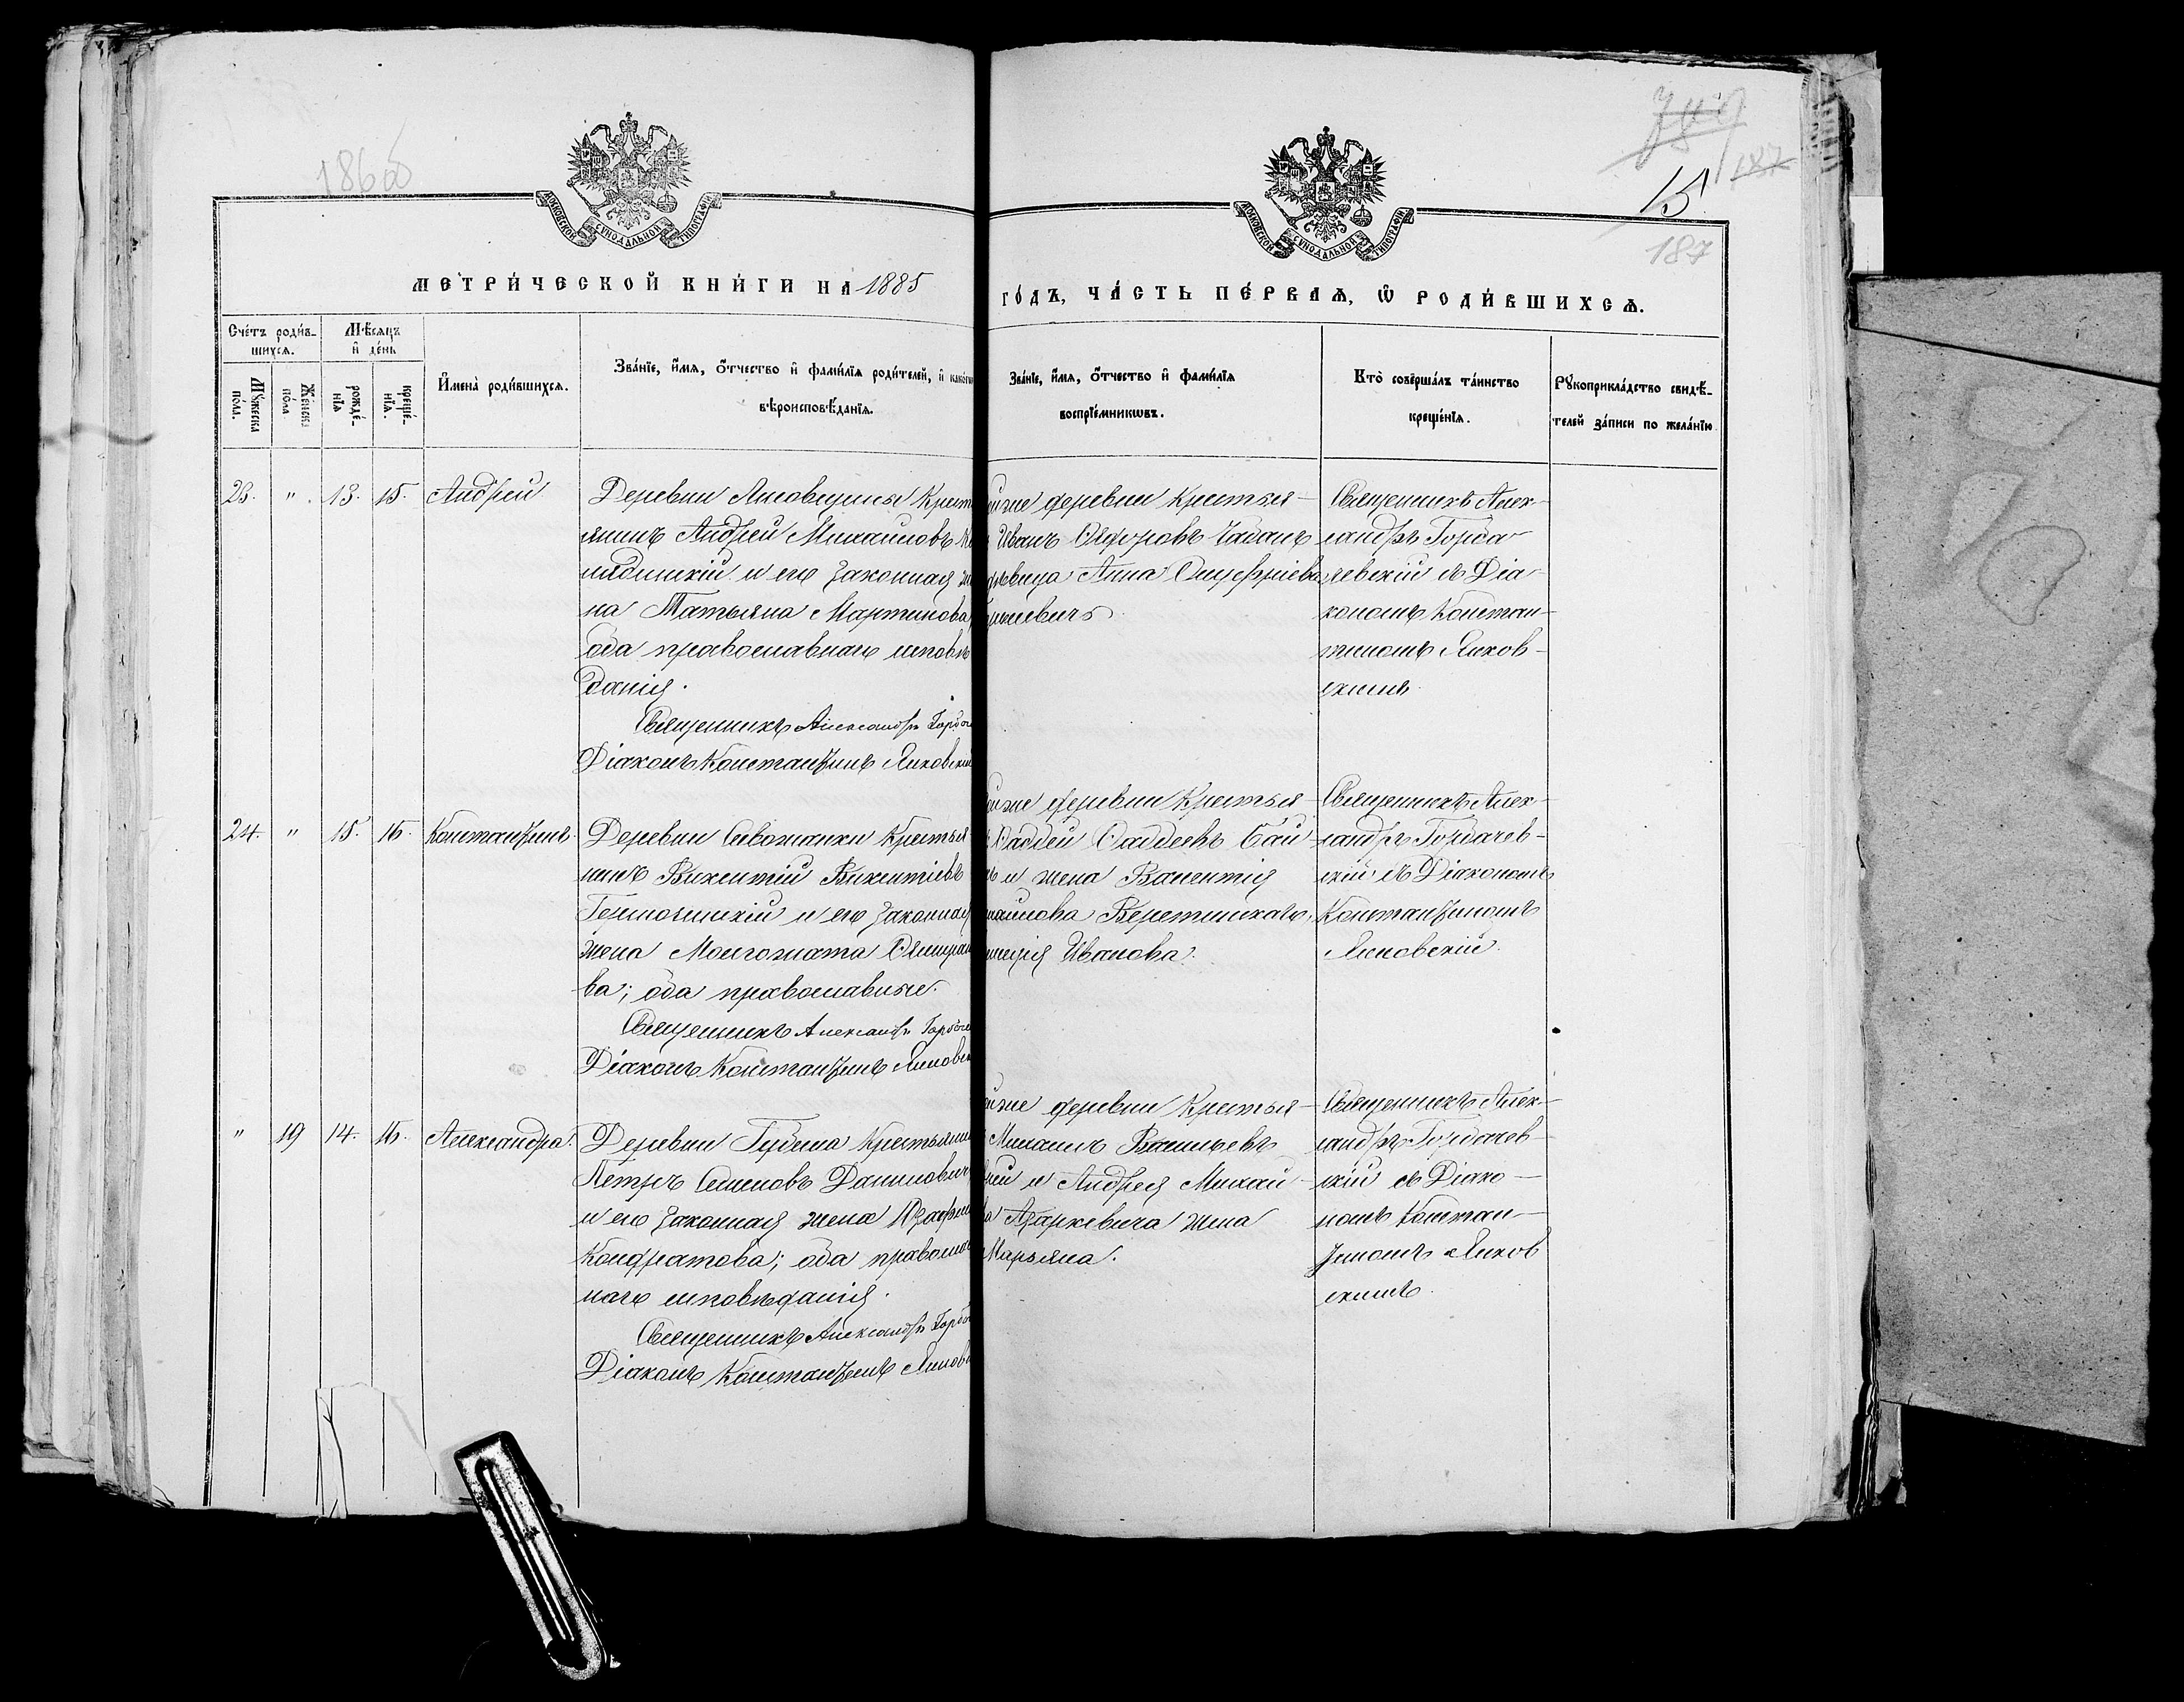 1860б
187
15
187
МОСКОВСКОЙ СУНОДАЛЬНОЙ ТИПОГРАФІИ
МОСКОВСКОЙ СУНОДАЛЬНОЙ ТИПОГРАФІИ
МЕТРИ́ЧЕСКОЙ КНИ́ГИ НА 1885
ГО́ДЪ, ЧА́СТЬ ПЕ́РВАѦ, Ѡ РОДИ́ВШИХСѦ.
Сче́тъ роди́в-
шихсѧ.
Мѣ́сѧцъ
и де́нь
Мꙋ́жеска
по́ла.
Же́нска
по́ла
рожде́-
нїѧ
креще́-
нїѧ.
Имена̀ роди́вшихсѧ.
Зва́нїе, и́мѧ, о́тчество и фами́лїѧ роди́телей, и како́гѡ
вѣроисповѣ́данїѧ.
Зва́нїе, и́мѧ, о́тчество и фами́лїѧ
воспрїе́мникѡвъ.
Кто̀ соверша́лъ та́инство
креще́нїѧ.
Рꙋкоприкла́дство свидѣ́-
телей за́писи по жела́нїю.
23. " 13. 15. Андрей
Деревни Крест
янинъ Андрей Михайловъ
и его законная
на Татьяна Мартинова
оба православнаго исповѣ
данія.
Священникъ Александръ Горба
Діаконъ Константинъ Янковскій
же деревни Крестья-
Иванъ Ѳедоровъ
дѣвица Анна Онуфріева
Священникъ Алек-
сандръ Горба-
чевскій съ Діа-
кономъ Констан-
тиномъ Янков-
скимъ.
24. " 15. 16. Константинъ.
Деревни Крестья
нинъ Викентій Викентіевъ
и его законная
жена
ва; оба православные.
Священникъ Александръ Горбаче
Діаконъ Константинъ Янковск
же деревни Крестья-
Ѳаддей Ѳаддеевъ
и жена
Иванова.
Священникъ Алек-
сандръ Горбачев-
скій съ Діакономъ
Константиномъ
Янковскій.
" 19 14. 16. Александра.
Деревни Крестьянин
Петръ Семеновъ Данилович
и его законная жена
Кондратова; оба правосла
наго исповѣданія.
Священникъ Александръ Горба
Діаконъ Константинъ Янковс
же деревни Крестья-
Михаилъ Васильевъ
и Андрея Михай-
Азаркевича жена
Марьяна.
Священникъ Алек-
сандръ Горбачев-
скій съ Діако-
номъ Констан-
тиномъ Янков
скимъ.